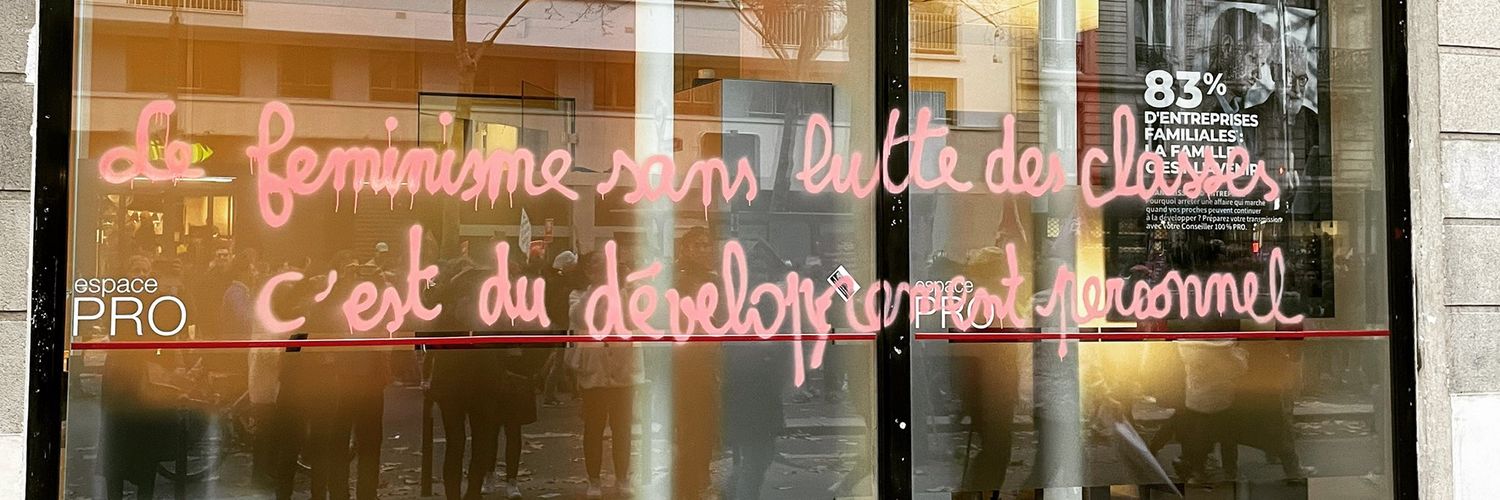 Le feminisme sans lutte des classes
c'est du développement personnel
espace
PRO
espace
PRO
83%
D'ENTREPRISES
FAMILIALES :
LA FAMILLE
C'EST L'AVENIR.
Pourquoi arrêter une affaire qui marche
quand vos proches peuvent continuer
à la développer ? Préparez votre transmission
avec votre Conseiller 100% PRO.